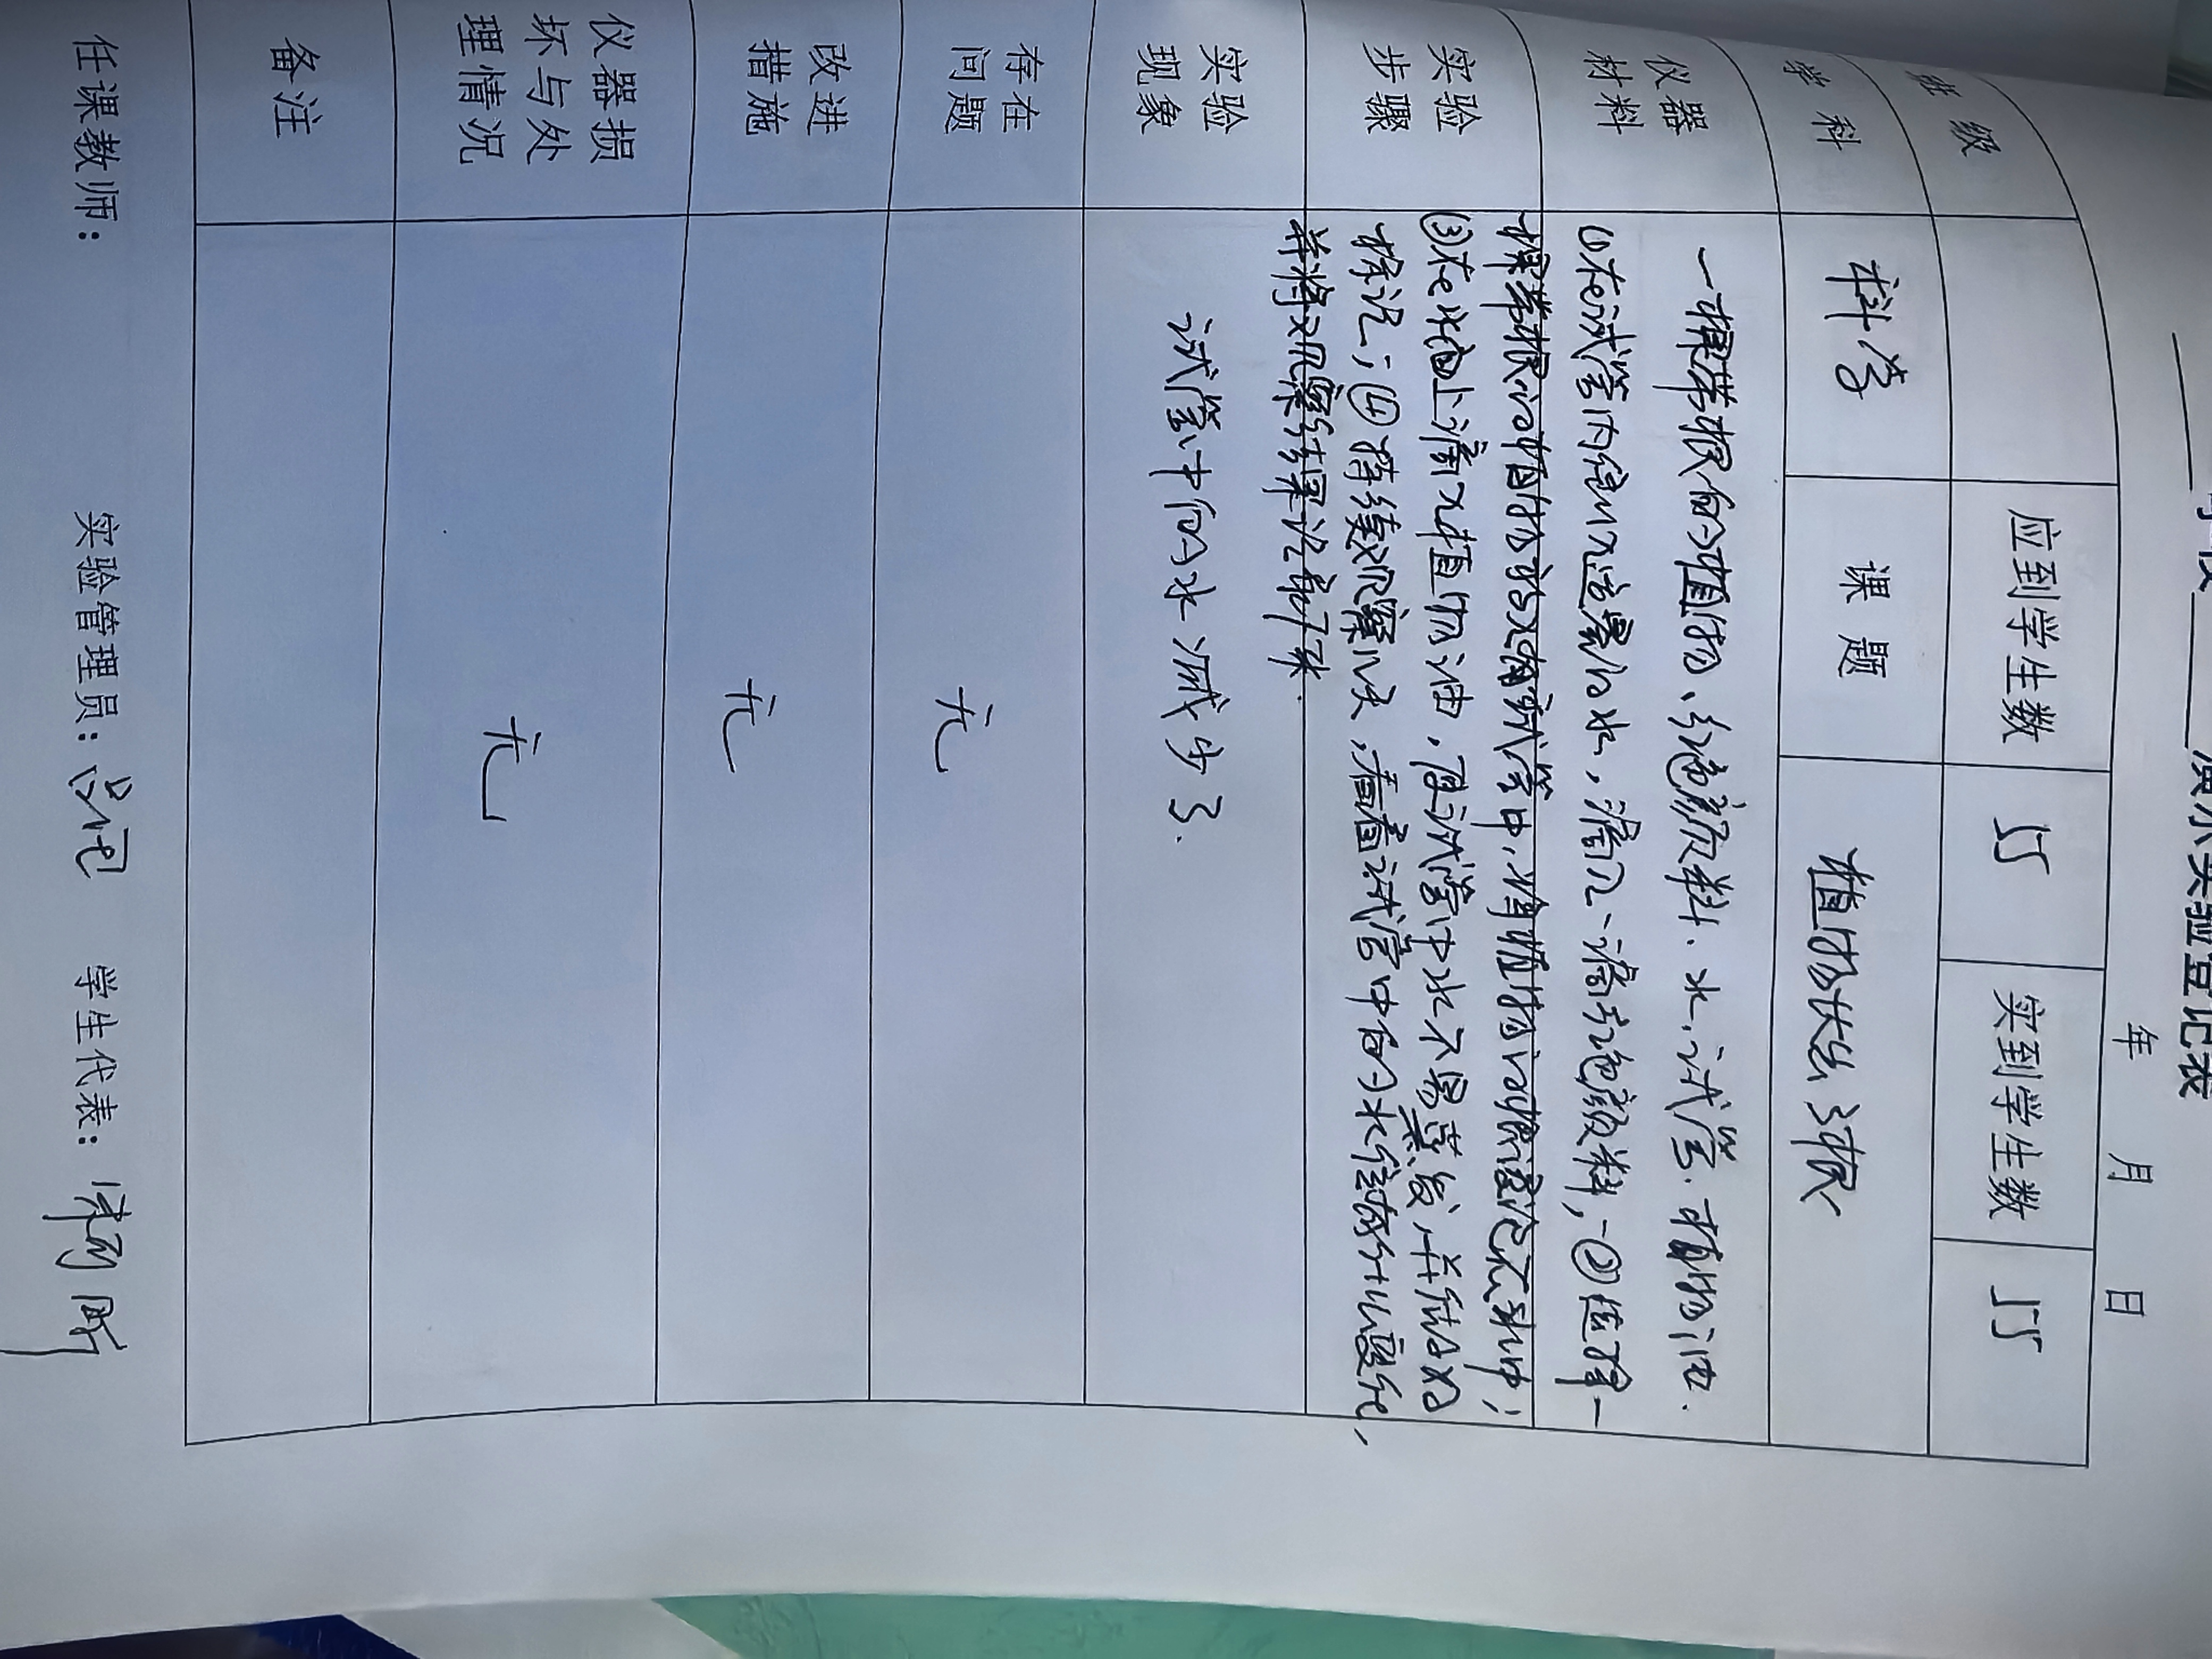 演示实验登记表
年 月 日
班 级 应到学生数 55 实到学生数 55
学 科 科学 课 题 植物长出了根
仪器材料 一棵带根的植物、红色颜料、水、试管、植物油.
实验步骤 ①在试管内注入适量的水,滴入一滴红色颜料,②选择一
棵带根的植物放入试管中,将植物的根浸泡在水中;
③在水面上滴入植物油,使试管中水不易蒸发,并做好
标记;④持续观察几天,看看试管中的水位有什么变化,
并将观察结果记录下来.
实验现象 试管中的水减少了.
存在问题 无
改进措施 无
仪器损坏与处理情况 无
备注
任课教师: 实验管理员: 学生代表: